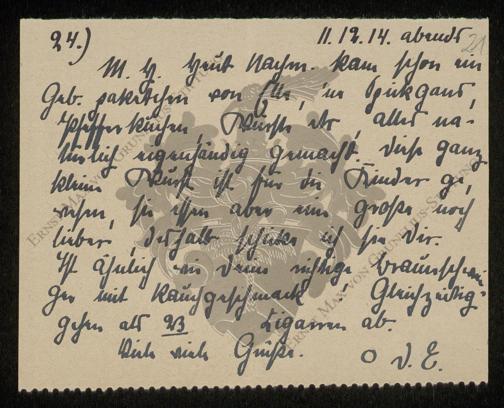 24.) 11.12.14. abends 21
M. H. Heut Nachm. kam schon ein
Geb. paketchen von Elle, 'ne Spickgans,
Pfefferkuchen, Würste etc, alles na-
türlich eigenhändig gemacht. Diese ganz
kleine Wurst ist für die Kinder ge,
wesen, sie essen aber eine große noch
lieber, deshalb schicke ich sie Dir.
Ist ähnlich wie Deine richtige braunschwei-
ger mit Rauchgeschmack. Gleichzeitig
gehen als 23 Zigarren ab.
Viele viele Grüße.
O D. E.
ERNST MAX VON GRUNELIUS-STIFTUNG
ERNST MAX VON GRUNELIUS-STIFTUNG